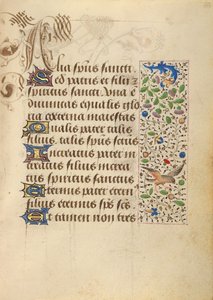 Alia sp̄us sancti
Sed patris et filii
spiritus sancti Una e
diuinitas equalis glo
ria coeterna maiestas
Qualis pater talis
filius talis sp̄us sctūs
Increatus pater in
creatus filius increa
tus spiritus sanctus
Eternus pater eter
filius eternus sp̄s sc̄s
Et tamen non tres